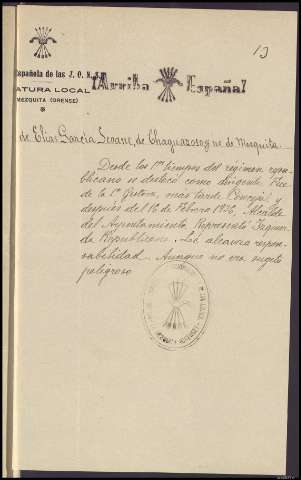 13
Española de las J. O. N. S.
¡Arriba España!
ATURA LOCAL
MEZQUITA (ORENSE)
de Elías García Seoane, de Chaguazoso, de Mezquita.
Desde los 1os tiempos del régimen repu-
blicano se destacó como dirigente,
de la 1ª Gestora, más tarde Concejal y
después del 16 de Febrero 1936, Alcalde
del Ayuntamiento. Representó Izquier-
da Republicana. Le alcanza respon-
sabilidad. Aunque no era sujeto
peligroso